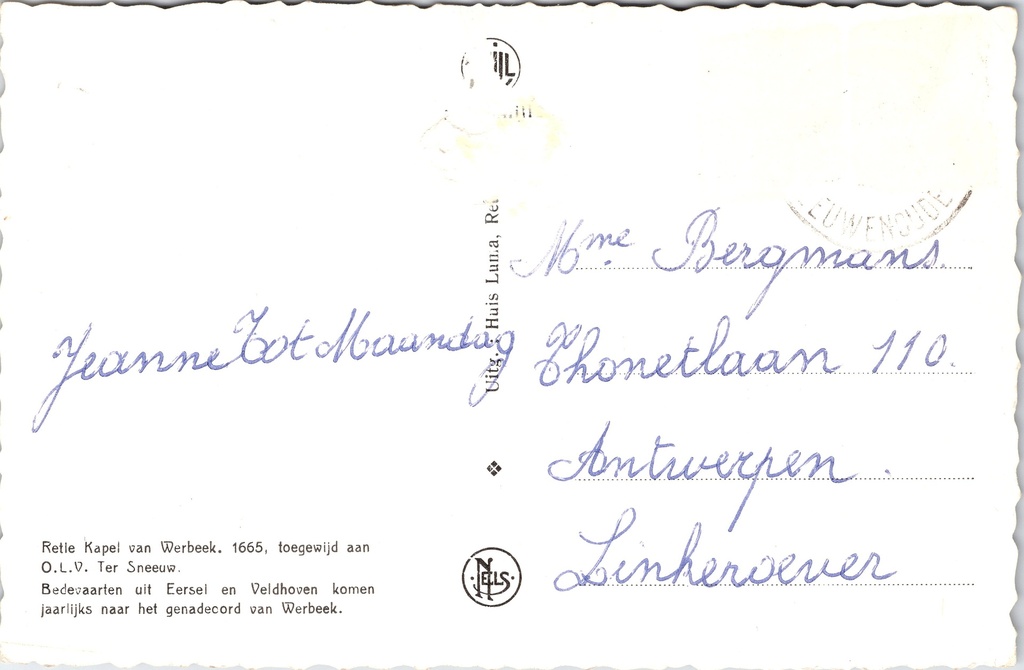 Jeanne Tot Maandag
Retie Kapel van Werbeek. 1665, toegewijd aan
O.L.V. Ter Sneeuw.
Bedevaarten uit Eersel en Veldhoven komen
jaarlijks naar het genadecord van Werbeek.
Uitg. : Huis Luna, Re
NELS
EUWENOUDE
Mme. Bergmans.
Thonetlaan 110.
Antwerpen.
Linkeroever